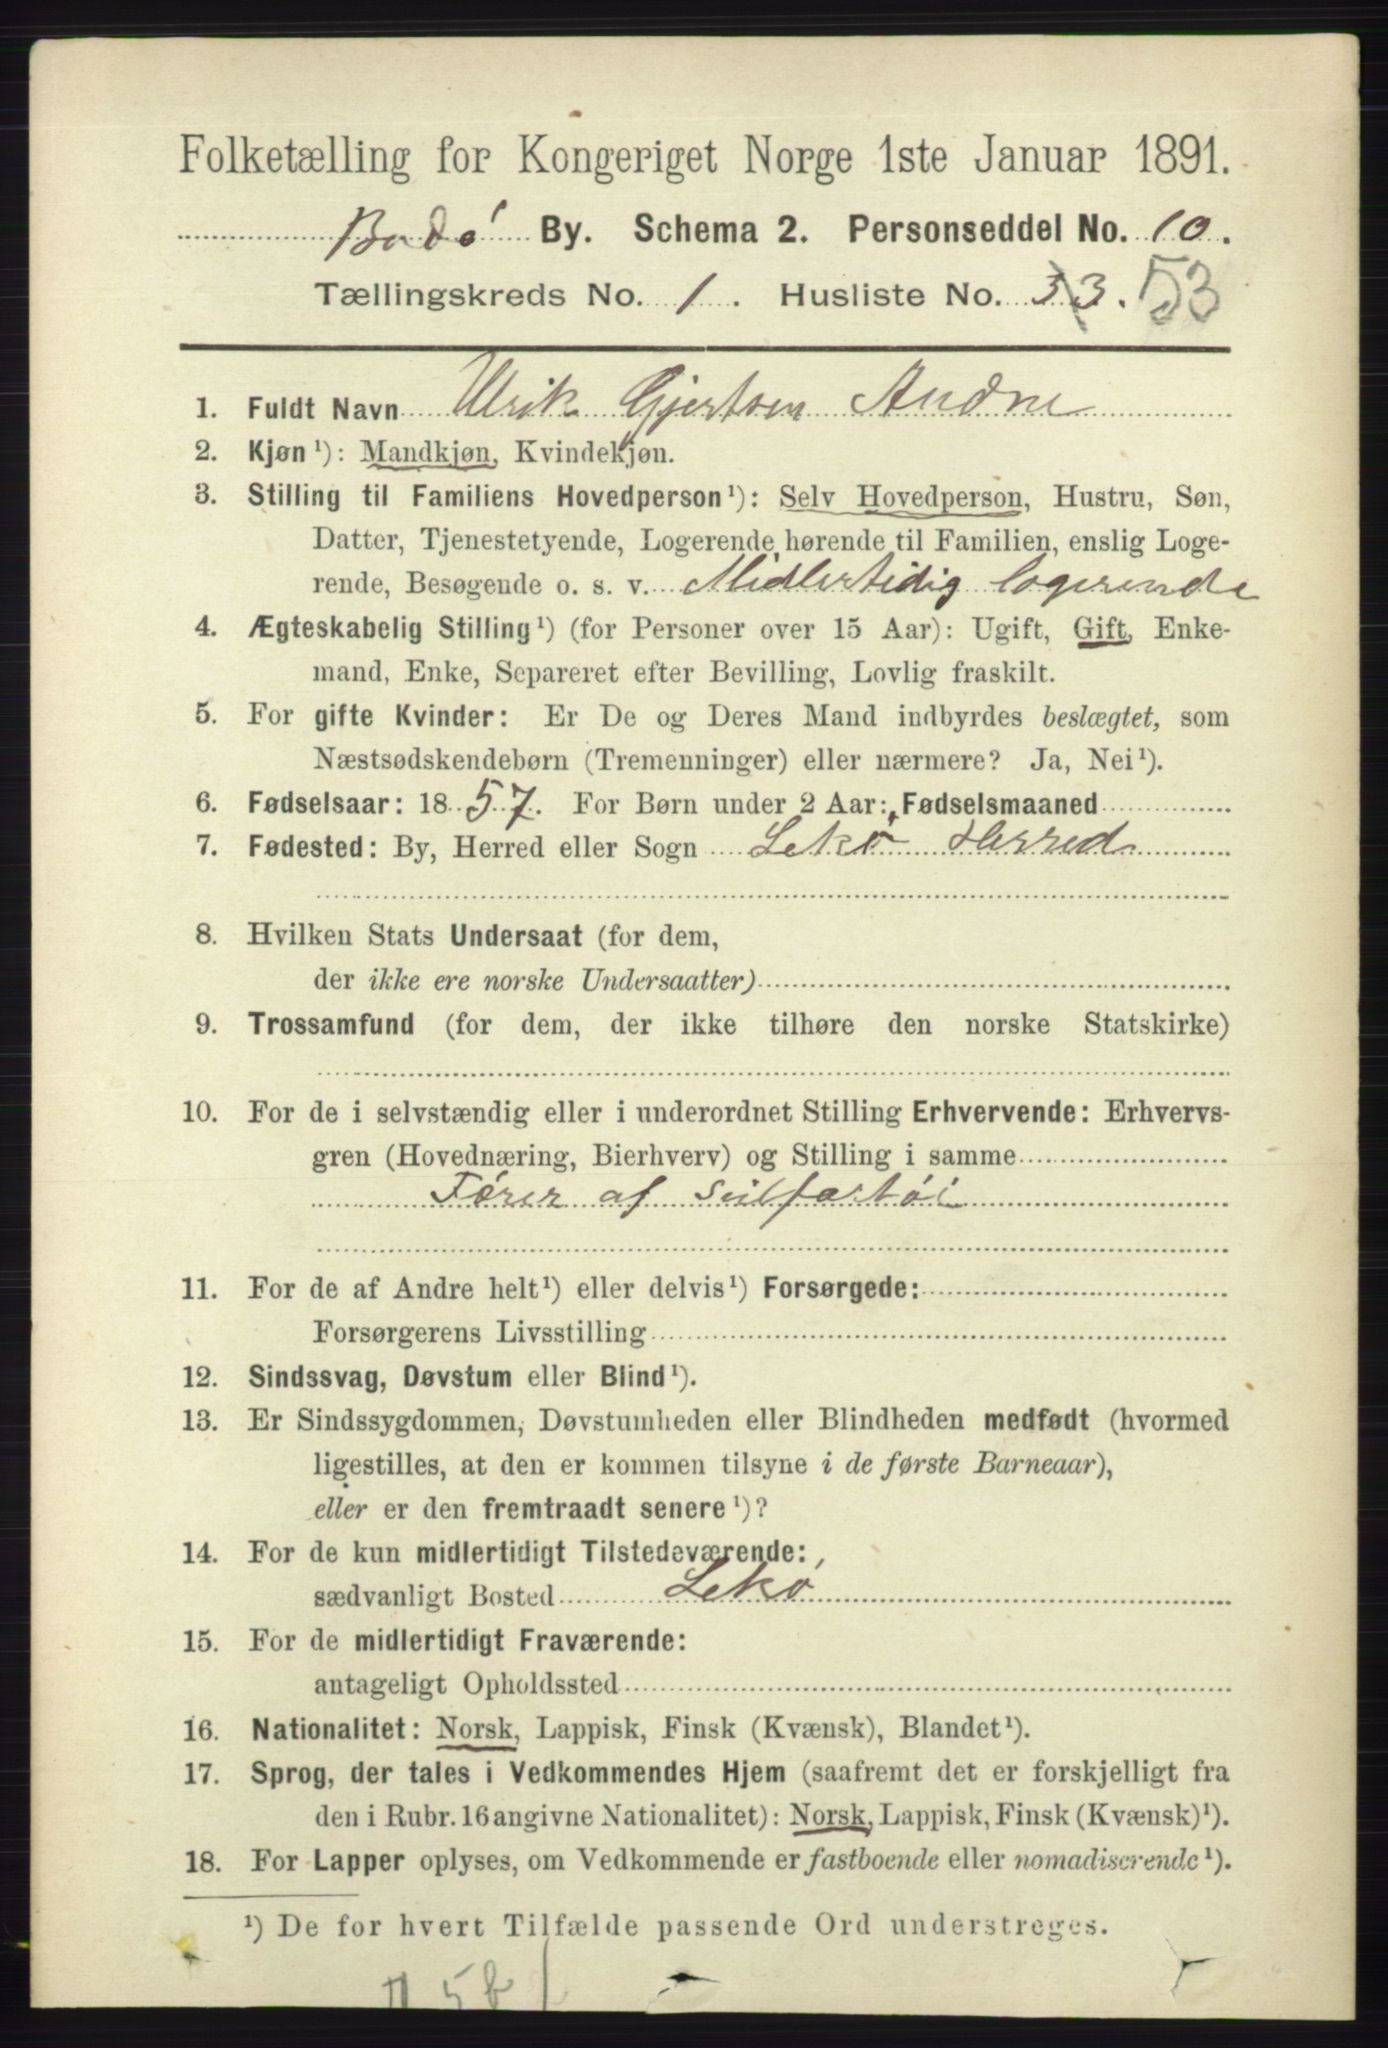 Folketælling for Kongeriget Norge 1ste Januar 1891.
Bodø By. Schema 2. Personseddel No. 10.
Tællingskreds No. 1. Husliste No. 33. 53
1. Fuldt Navn Ulrik Gjertsen Andne
2. Kjøn ¹): Mandkjøn, Kvindekjøn.
3. Stilling til Familiens Hovedperson ¹): Selv Hovedperson, Hustru, Søn,
Datter, Tjenestetyende, Logerende hørende til Familien, enslig Loge-
rende, Besøgende o. s. v. Midlertidig logerende
4. Ægteskabelig Stilling ¹) (for Personer over 15 Aar): Ugift, Gift, Enke-
mand, Enke, Separeret efter Bevilling, Lovlig fraskilt.
5. For gifte Kvinder: Er De og Deres Mand indbyrdes beslægtet, som
Næstsødskendebørn (Tremenninger) eller nærmere? Ja, Nei ¹).
6. Fødselsaar: 1857. For Børn under 2 Aar: Fødselsmaaned
7. Fødested: By, Herred eller Sogn Lekø Herred
8. Hvilken Stats Undersaat (for dem,
der ikke ere norske Undersaatter)
9. Trossamfund (for dem, der ikke tilhøre den norske Statskirke)
10. For de i selvstændig eller i underordnet Stilling Erhvervende: Erhvervs-
gren (Hovednæring, Bierhverv) og Stilling i samme
Fører af seilfartøi
11. For de af Andre helt ¹) eller delvis ¹) Forsørgede:
Forsørgerens Livsstilling
12. Sindssvag, Døvstum eller Blind ¹).
13. Er Sindssygdommen, Døvstumheden eller Blindheden medfødt (hvormed
ligestilles, at den er kommen tilsyne i de første Barneaar),
eller er den fremtraadt senere ¹)?
14. For de kun midlertidigt Tilstedeværende:
sædvanligt Bosted Lekø
15. For de midlertidigt Fraværende:
antageligt Opholdssted
16. Nationalitet: Norsk, Lappisk, Finsk (Kvænsk), Blandet ¹).
17. Sprog, der tales i Vedkommendes Hjem (saafremt det er forskjelligt fra
den i Rubr. 16 angivne Nationalitet): Norsk, Lappisk, Finsk (Kvænsk) ¹).
18. For Lapper oplyses, om Vedkommende er fastboende eller nomadiserende ¹).
¹) De for hvert Tilfælde passende Ord understreges.